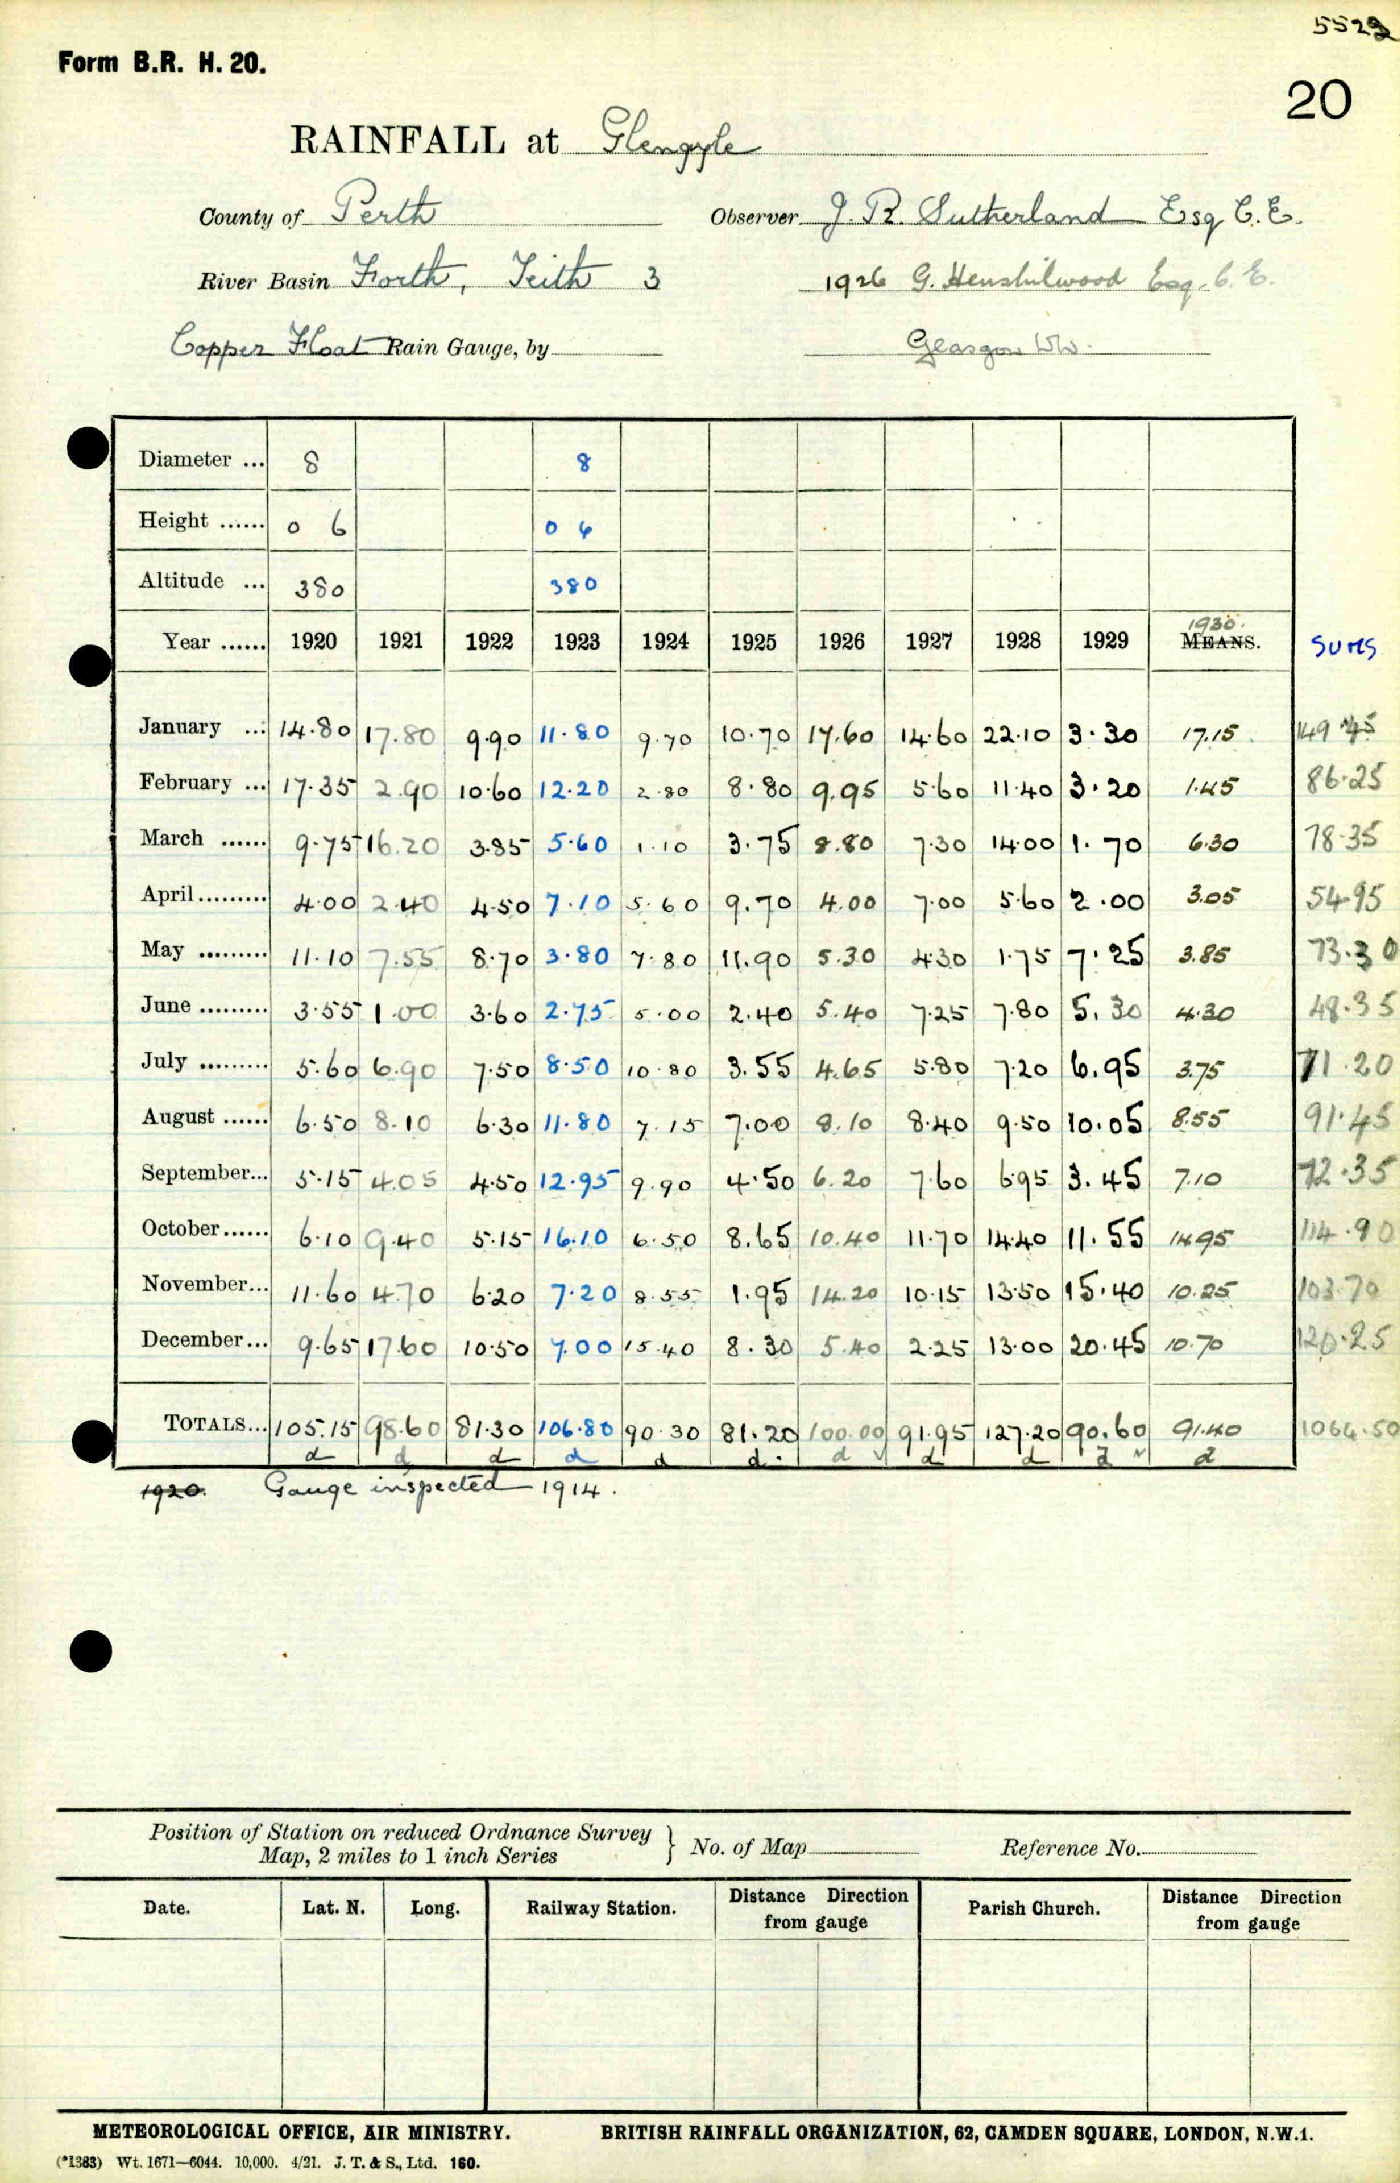 5522
Form B.R. H. 20.
20
RAINFALL at Glengyle
County of Perth Observer J. R. Sutherland Esq C.E.
River Basin Forth, Teith 3 1926 G. Henshilwood Esq. C.E.
Copper Float Rain Gauge, by Glasgow WW.
Diameter ... 8 8
Height ...... 0 6 0 6
Altitude ... 380 380
1930.
Year ...... 1920 1921 1922 1923 1924 1925 1926 1927 1928 1929 MEANS. SUMS
January ... 14.80 17.80 9.90 11.80 9.70 10.70 17.60 14.60 22.10 3.30 17.15 149.45
February ... 17.35 2.90 10.60 12.20 2.80 8.80 9.95 5.60 11.40 3.20 1.45 86.25
March ...... 9.75 16.20 3.85 5.60 1.10 3.75 8.80 7.30 14.00 1.70 6.30 78.35
April ......... 4.00 2.40 4.50 7.10 5.60 9.70 4.00 7.00 5.60 2.00 3.05 54.95
May ......... 11.10 7.55 8.70 3.80 7.80 11.90 5.30 4.30 1.75 7.25 3.85 73.30
June ......... 3.55 1.00 3.60 2.75 5.00 2.40 5.40 7.25 7.80 5.30 4.30 48.35
July ......... 5.60 6.90 7.50 8.50 10.80 3.55 4.65 5.80 7.20 6.95 3.75 71.20
August ...... 6.50 8.10 6.30 11.80 7.15 7.00 8.10 8.40 9.50 10.05 8.55 91.45
September... 5.15 4.05 4.50 12.95 9.90 4.50 6.20 7.60 6.95 3.45 7.10 72.35
October...... 6.10 9.40 5.15 16.10 6.50 8.65 10.40 11.70 14.40 11.55 14.95 114.90
November... 11.60 4.70 6.20 7.20 8.55 1.95 14.20 10.15 13.50 15.40 10.25 103.70
December... 9.65 17.60 10.50 7.00 15.40 8.30 5.40 2.25 13.00 20.45 10.70 120.25
TOTALS... 105.15 98.60 81.30 106.80 90.30 81.20 100.00 91.95 127.20 90.60 91.40 1064.50
d d d d d d. d d d d d
1920. Gauge inspected 1914.
Position of Station on reduced Ordnance Survey
Map, 2 miles to 1 inch Series } No. of Map Reference No.
Date. Lat. N. Long. Railway Station. Distance from gauge Direction Parish Church. Distance from gauge Direction
METEOROLOGICAL OFFICE, AIR MINISTRY. BRITISH RAINFALL ORGANIZATION, 62, CAMDEN SQUARE, LONDON, N.W.1.
(*1383) Wt. 1671—6044. 10,000. 4/21. J. T. & S., Ltd. 160.